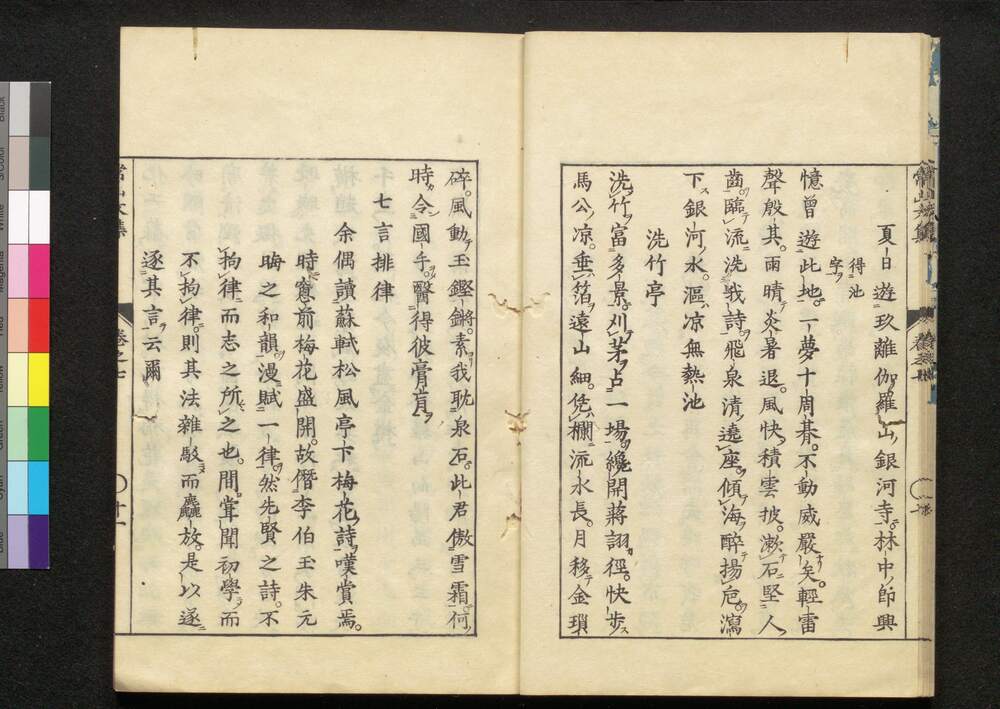 夏日遊玖離伽羅山銀河寺林中卽興
得池
字
憶曾遊此地一夢十周朞不動威嚴矣輕雷
聲殷其雨晴炎暑退風快積雲披漱石堅人
齒臨流洗我詩飛泉清遶座傾海醉揚卮瀉
下銀河水漚凉無熱池
洗竹亭
洗竹富多景刈茅占一場纔開蔣詡徑快步
馬公凉垂箔遠山細凭欄流水長月移金瑣
碎風動玉鏗鏘素我耽泉石此君傲雪霜何
時令國手醫得彼膏肓
七言排律
余偶讀蘇軾松風亭下梅花詩嘆賞焉
時窻前梅花盛開故僭李伯玉朱元
晦之和韻漫賦一律然先賢之詩不
拘律而志之所之也間甞聞初學而
不拘律則其法雜駁而麤放是以遂
逐其言云爾
卷之七
十一